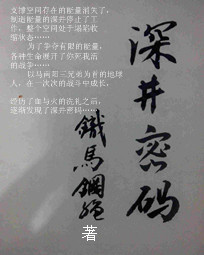 支撑空间存在的能量消失了，
制造能量的深井停止了工
作，整个空间处于塌陷收
缩状态……
为了争夺有限的能量，
各种生命展开了你死我活
的战争……
以马南邦三兄弟为首的地球
人，在一次次的战斗中成长，
经历了血与火的洗礼之后，
逐渐发现了深井密码……
深井密码
鐵馬鋼繩
著